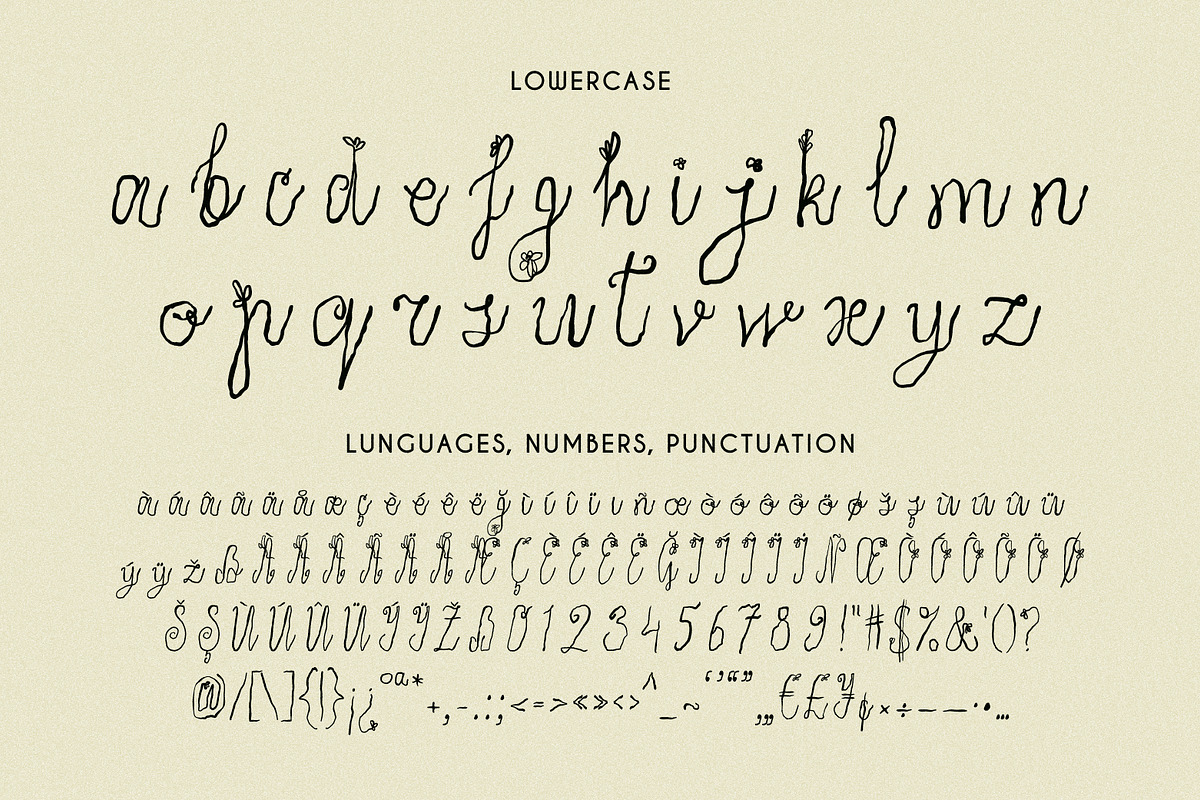 LOWERCASE
a b c d e f g h i j k l m n
o p q r s u t v w x y z
LUNGUAGES, NUMBERS, PUNCTUATION
à á â ã ä å æ ç è é ê ë ğ ì í î ï ı ñ œ ò ó ô õ ö ø š ş ù ú û ü
ý ÿ ž ß À Á Â Ã Ä Å Æ Ç È É Ê Ë Ğ Ì Í Î Ï İ Ñ Œ Ò Ó Ô Õ Ö Ø
Š Ş Ù Ú Û Ü Ý Ÿ Ž ß 0 1 2 3 4 5 6 7 8 9 ! " # $ % & ' ( ) ?
@ / [ \ ] { | } ¡ ¿ º ª * + , - . : ; < = > « » ‹ › ^ _ ~ ‘ ’ “ ” ‚ „ € £ ¥ ¢ × ÷ – — · • …